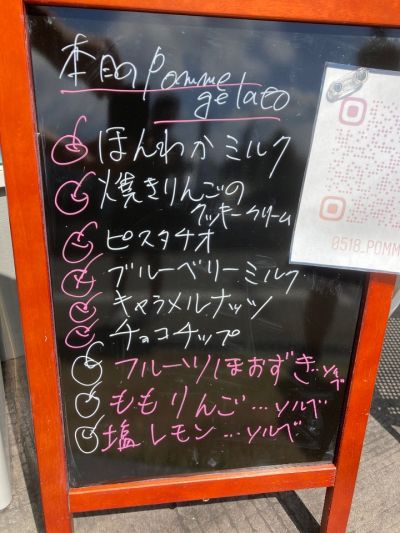 本日のpomme
gelato
ほんわかミルク
焼きりんごの
クッキークリーム
ピスタチオ
ブルーベリーミルク
キャラメルナッツ
チョコチップ
フルーツほおずき…ソルベ
ももりんご…ソルベ
塩レモン…ソルベ
0518_POMM